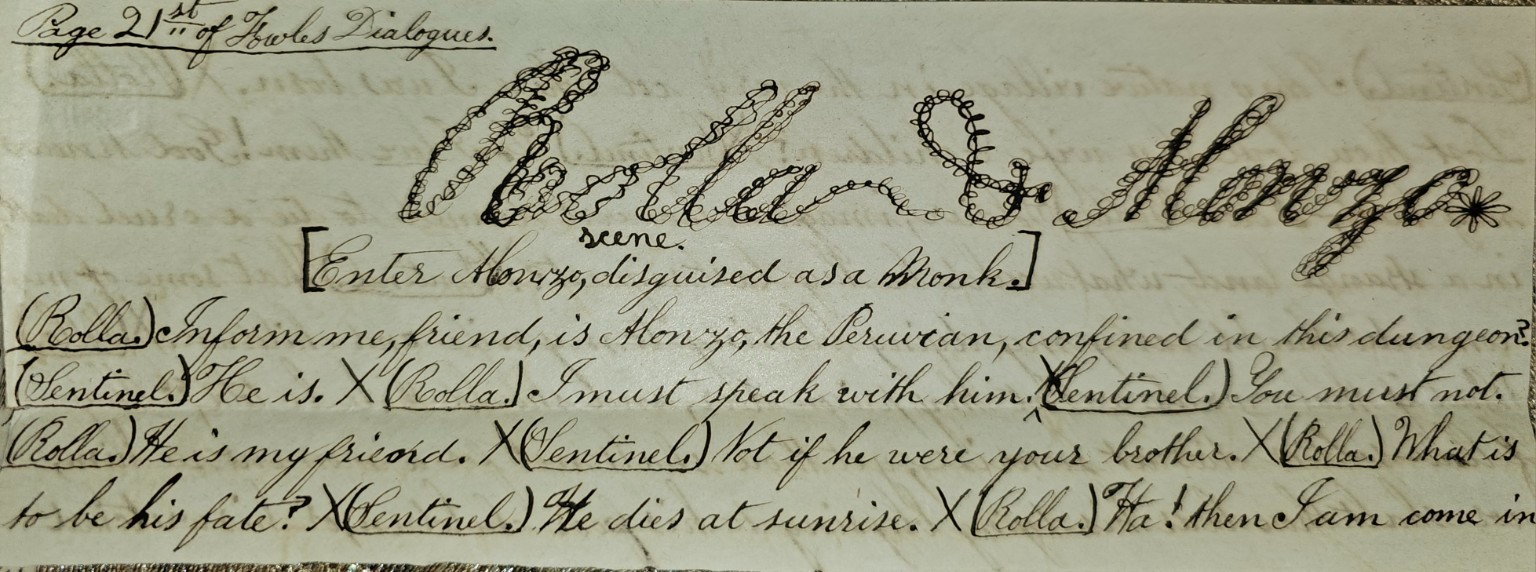 Page 21st of Fowles Dialogues.
Rolla & Alonzo
scene.
[Enter Alonzo, disguised as a Monk.]
(Rolla.) Inform me, friend, is Alonzo, the Peruvian, confined in this dungeon?
(Sentinel.) He is. X (Rolla.) I must speak with him. X (Sentinel.) You must not.
(Rolla.) He is my friend. X (Sentinel.) Not if he were your brother. X (Rolla.) What is
to be his fate? X (Sentinel.) He dies at sunrise. X (Rolla.) Ha! then I am come in